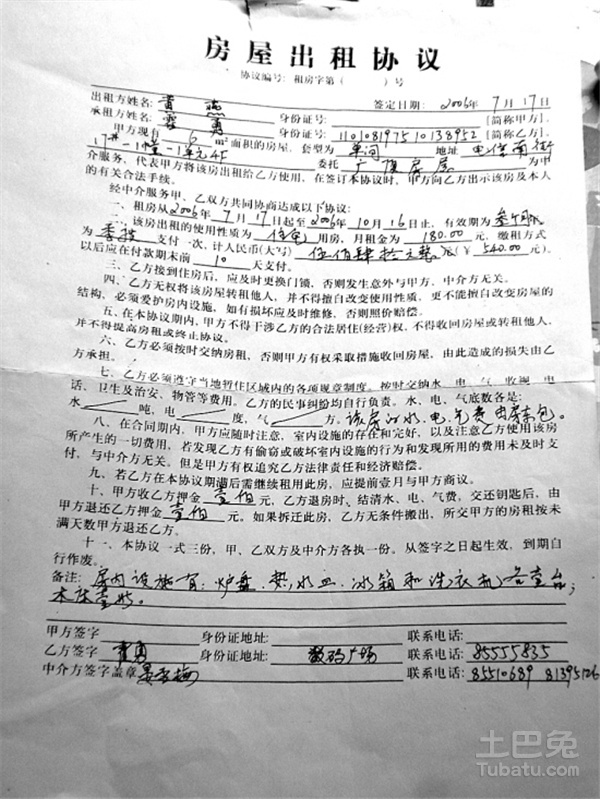 房屋出租协议
协议编号：租房字第（ ）号
出租方姓名：黄 签定日期：2006年7月17日
承租方姓名：勇 身份证号： [简称甲方]，
甲方现有 6 m²面积的房屋，套型为 单间 身份证号：110108197510138952 [简称乙方]，
17#—1幢—1单元4F 地址 电信南街
委托 广厦房屋 为中
介服务，代表甲方将该房出租给乙方使用，在签订本协议时，甲方向乙方出示该房及本人
的有关合法手续。
经中介服务甲、乙双方共同协商达成以下协议：
一、租房从2006年7月17日起至2006年10月16日止，有效期为叁个月
二、该房出租的使用性质为 住宅 用房，月租金为 180.00 元，缴租方式
为 季按 支付一次，计人民币(大写) 伍佰肆拾元整 元(￥ 540.00 元)，
以后应在付款期末前 10 天支付。
三、乙方接到住房后，应及时更换门锁，否则发生意外与甲方、中介方无关。
四、乙方无权将该房屋转租他人，并不得擅自改变使用性质，更不能擅自改变房屋的
结构，必须爱护房内设施，如有损坏应及时维修，否则照价赔偿。
五、在本协议期内，甲方不得干涉乙方的合法居住(经营)权，不得收回房屋或转租他人，
并不得提高房租或终止协议。
六、乙方必须按时交纳房租，否则甲方有权采取措施收回房屋，由此造成的损失由乙
方承担。
七、乙方必须遵守当地暂住区域内的各项规章制度。按时交纳水、电、气、收视、电
话、卫生及治安、物管等费用。乙方的民事纠纷均自行负责。水、电、气底数各是：
水 吨，电 度，气 方。该房的水、电、气费由房东包。
八、在合同期内，甲方应随时注意，室内设施的存在和完好，以及注意乙方使用该房
所产生的一切费用，若发现乙方有偷窃或破坏室内设施的行为和发现所用的费用未及时支
付，与中介方无关。但是甲方有权追究乙方法律责任和经济赔偿。
九、若乙方在本协议期满后需继续租用此房，应提前壹月与甲方商议。
十、甲方收乙方押金 壹佰 元，乙方退房时、结清水、电、气费，交还钥匙后，由
甲方退还乙方押金 壹佰 元。如果拆迁此房，乙方无条件搬出，所交甲方的房租按未
满天数甲方退还乙方。
十一、本协议一式三份，甲、乙双方及中介方各执一份。从签字之日起生效，到期自
行作废。
备注：房内设施有：炉盘、热水皿、冰箱和洗衣机各壹台；
木床壹张。
甲方签字 身份证地址： 联系电话：
乙方签字 勇 身份证地址： 数码广场 联系电话：85555835
中介方签字盖章 联系电话：85510689 81395126
土巴兔
Tubatu.com